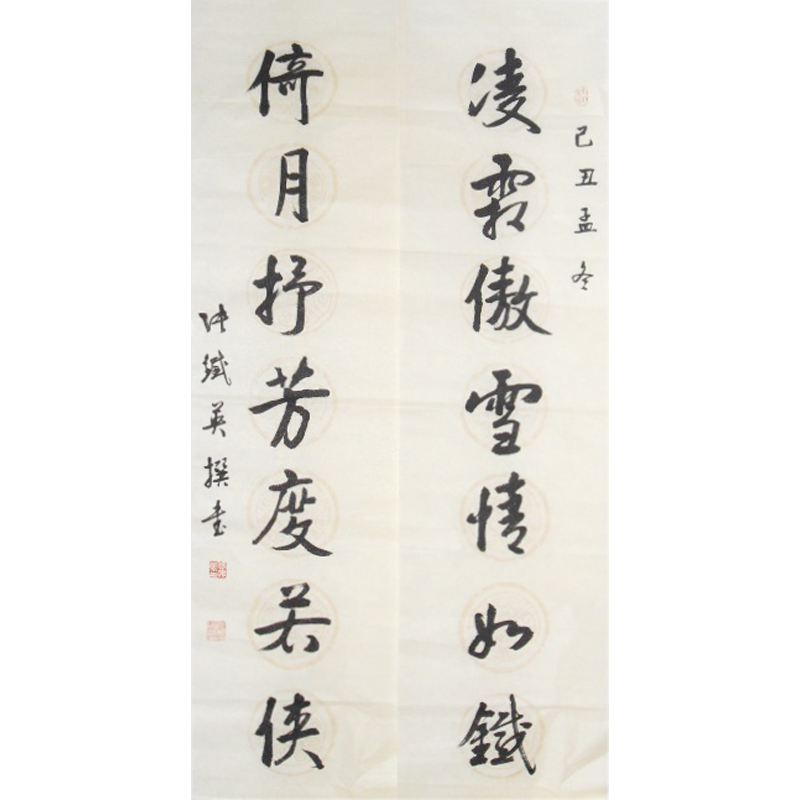 己丑孟冬
凌霜傲雪情如鐵
倚月抒芳度若俠
张鐵英撰书